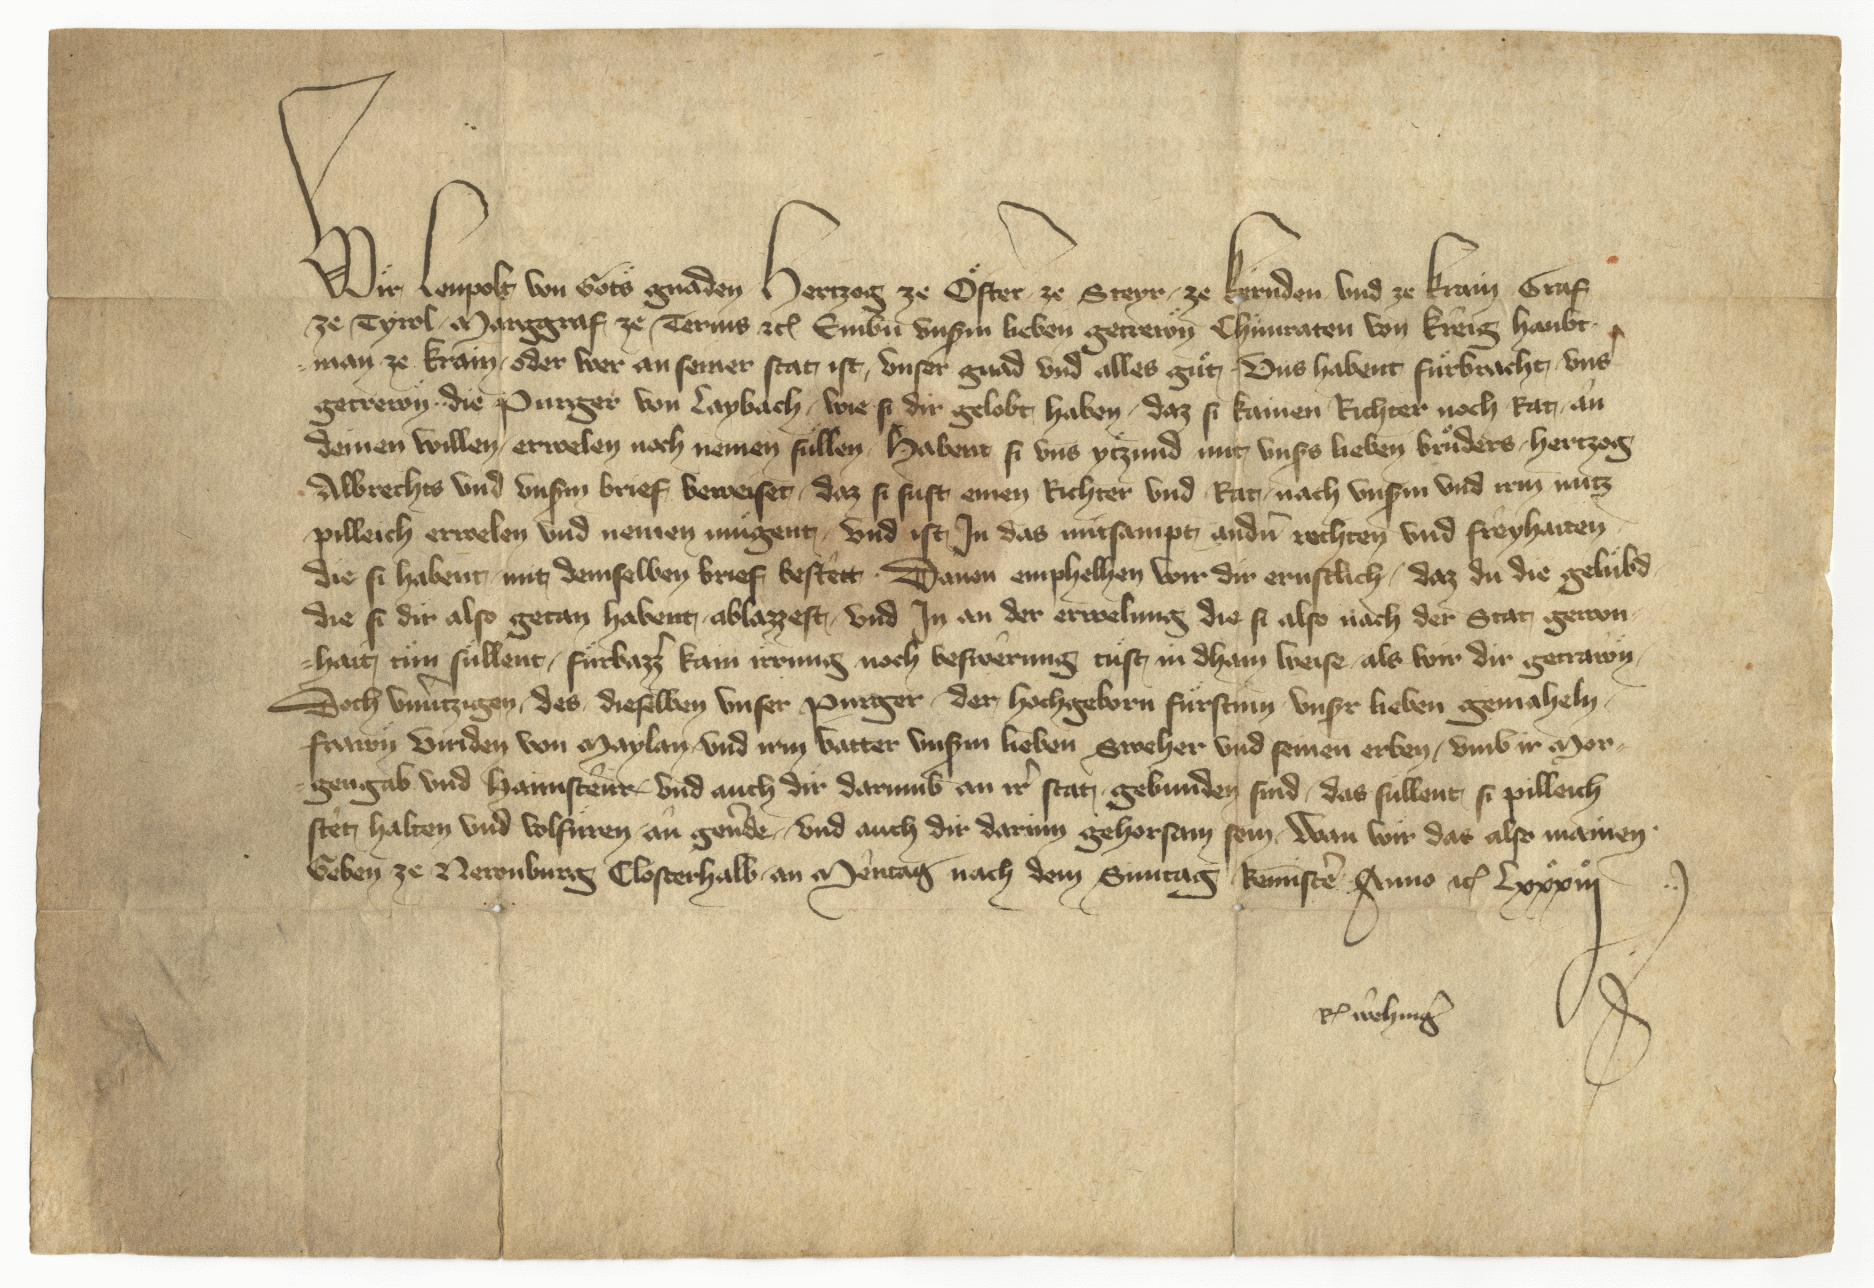 Wir Leupolt von Gots gnaden Hertzog ze Öster ze Steyr ze kernden vnd ze krain Graf
ze Tyrol Marggraf ze Teruis etc Embieten vnsm lieben getrewn Chunraten von kreig haubt
man ze krain oder wer an seiner stat ist, vnser gnad vnd alles gůt Uns habent fürbracht vns
getrewn die Purger von Laybach wie si dir gelobt haben daz si kainen Richter noch Rat an
deinen willen erwelen noch nemen süllen Habent si vns yczund mit vnss lieben brůders hertzog
Albrechts vnd vnsm brief beweiset daz si sust einen Richter vnd Rat nach vnsm vnd irm nutz
pilleich erwelen vnd nemen mugent vnd ist In das mitsampt andn rechten vnd freyhaiten
die si habent mit demselben brief bestett Dauon emphelhen wir dir ernstlich daz du die gelubd
die si dir also getan habent ablazzest vnd In an der erwelung die si also nach der Stat gewon
hait tun süllent fürbazz kain irrung noch beswerung tust in dhain weise als wir dir getrawn
Doch vnuerzigen des dieselben vnser Purger der hochgeborn fürstinn vnsr lieben gemaheln
frawn Viriden von Maylan vnd irm vatter vnsm lieben Sweher vnd seinen erben vmb ir Mor
gengab vnd Haimstewr vnd auch dir darumb an ir stat gebunden sind das süllent si pilleich
stet halten vnd volfüren an geuerde vnd auch dir darinn gehorsam sein Wan wir das also mainen
Geben ze Newnburg Closterhalb an Mentag nach dem Suntag Reminiscere Anno etc Lxxxiij
R wehinger